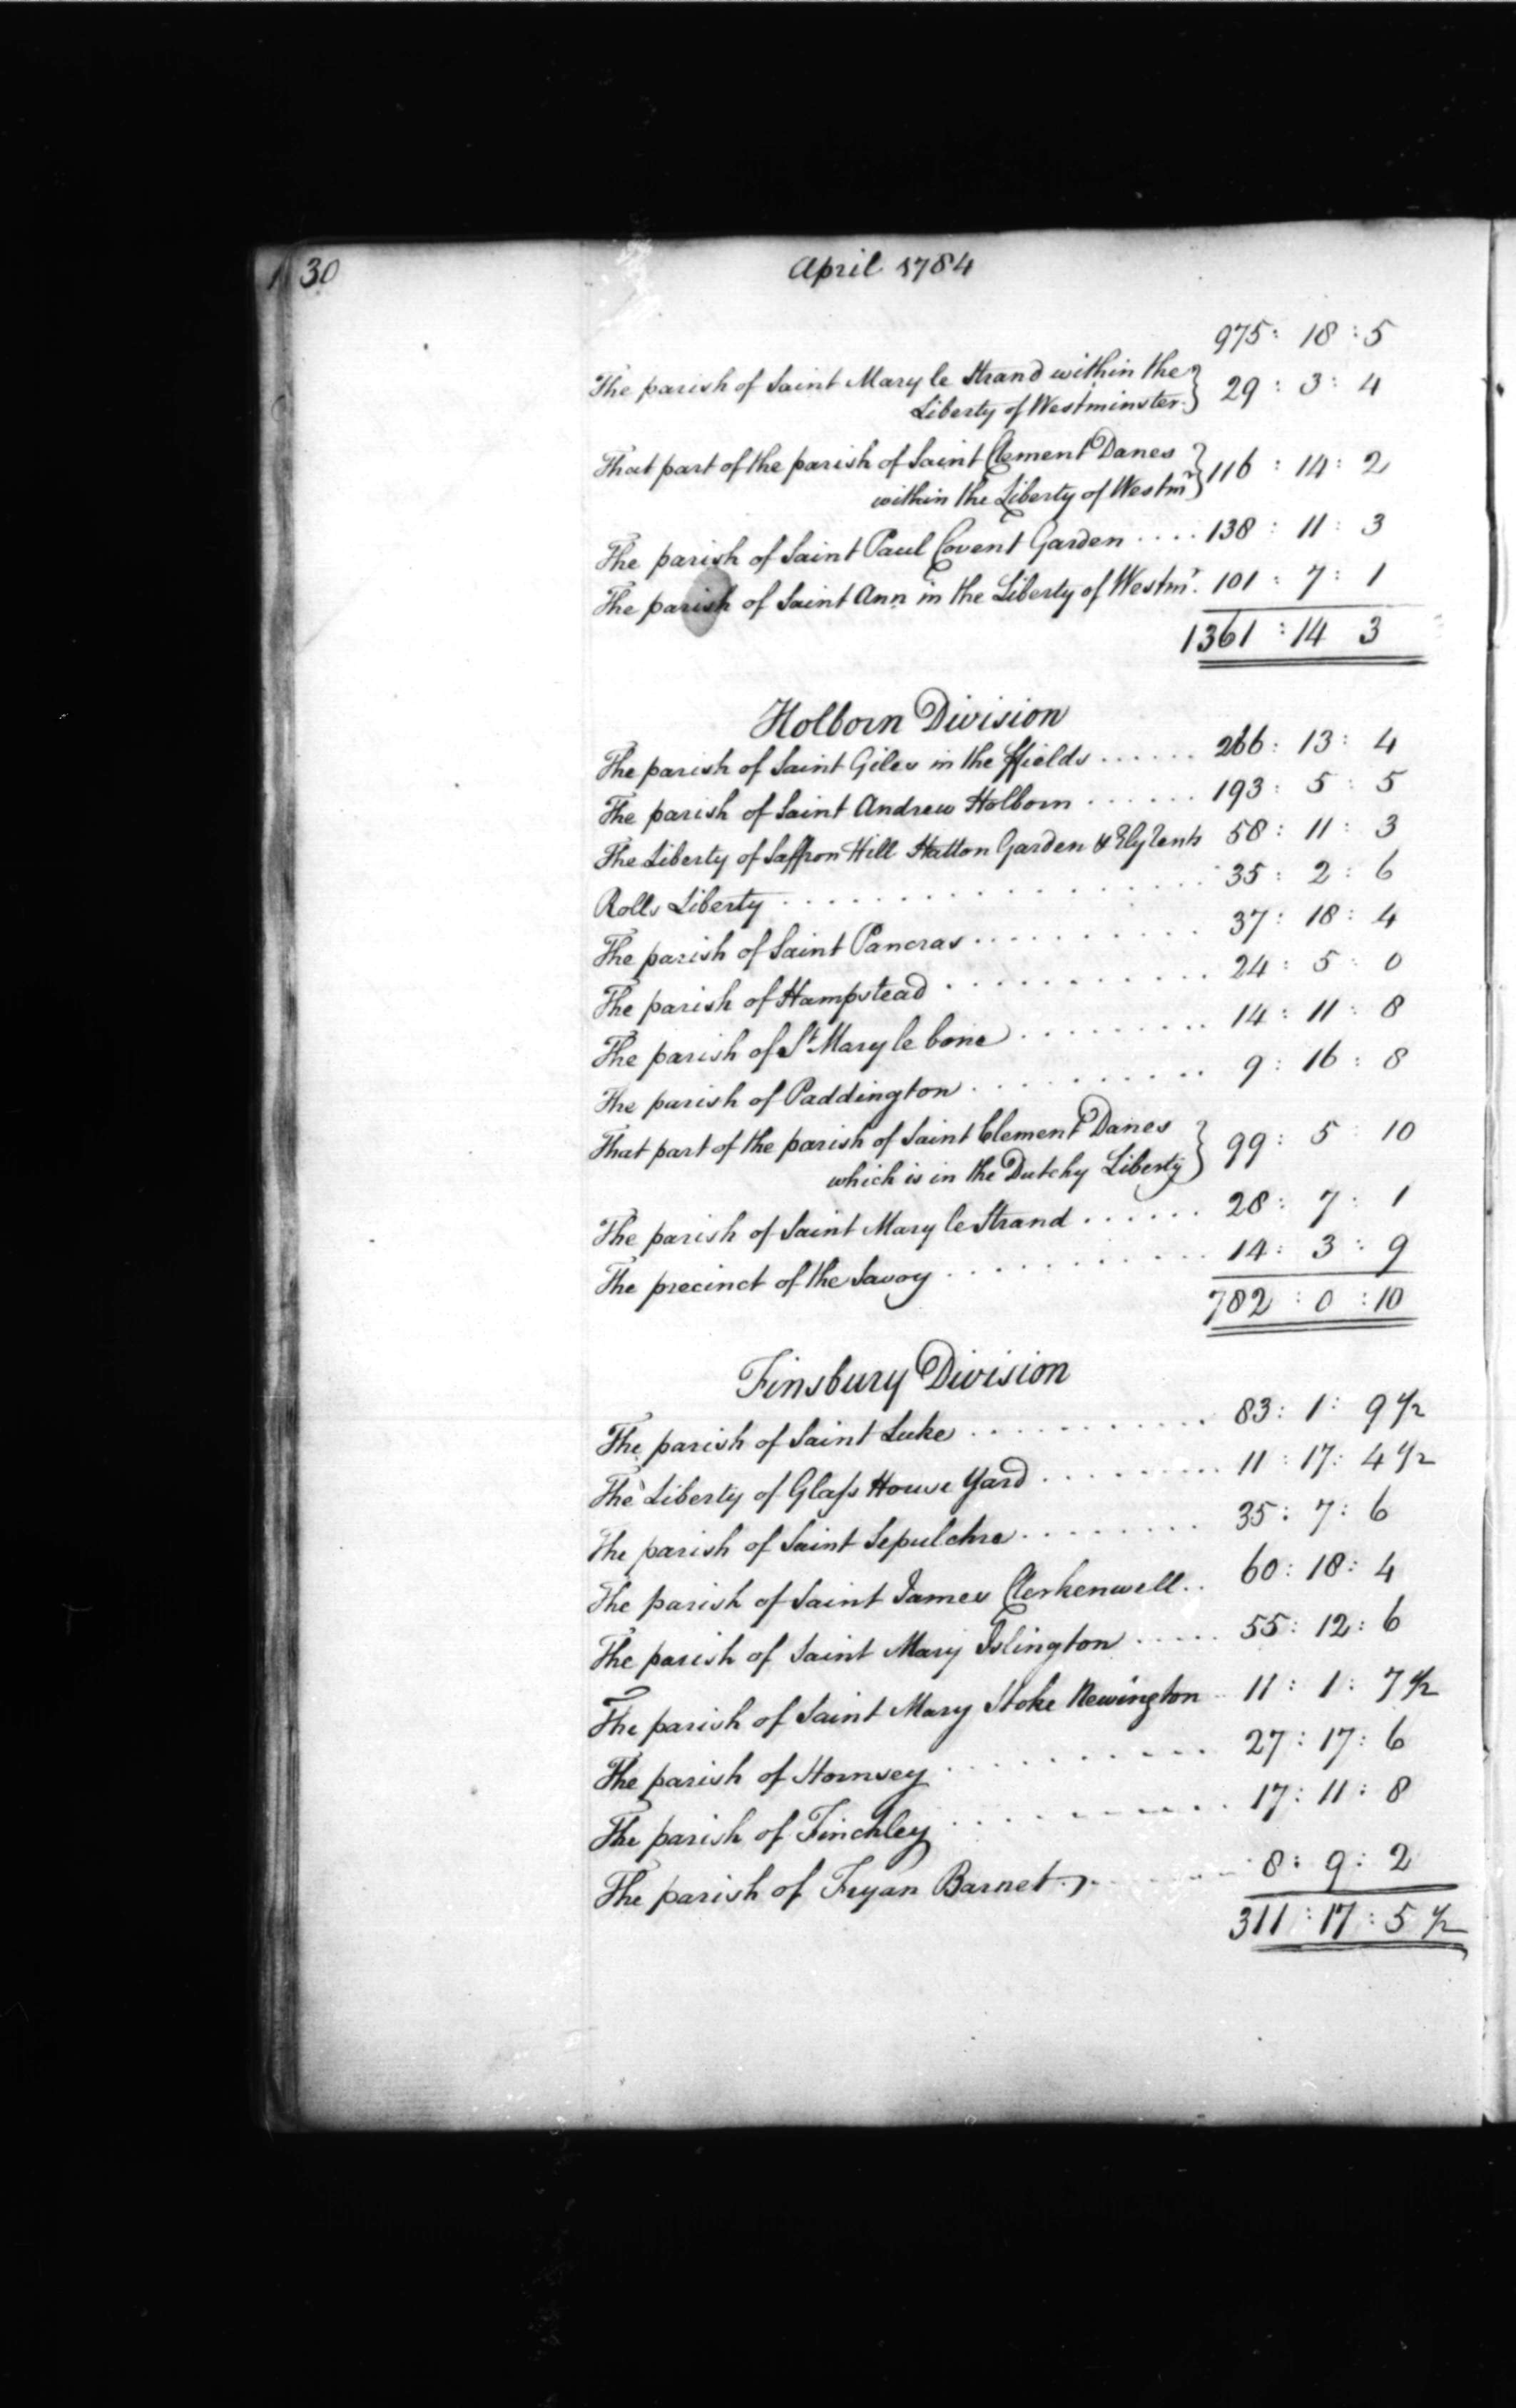 30
April 1784
975 : 18 : 5
The parish of Saint Mary le Strand within the
Liberty of Westminster } 29 : 3 : 4
That part of the parish of Saint Clement Danes
within the Liberty of Westmr } 116 : 14 : 2
The parish of Saint Paul Covent Garden .... 138 : 11 : 3
The parish of Saint Ann in the Liberty of Westmr. 101 : 7 : 1
1361 : 14 3
Holborn Division
The parish of Saint Giles in the ffields ...... 266 : 13 : 4
The parish of Saint Andrew Holborn ...... 193 : 5 : 5
The Liberty of Saffron Hill Hatton Garden & Ely Rents 58 : 11 : 3
Rolls Liberty .................. 35 : 2 : 6
The parish of Saint Pancras .......... 37 : 18 : 4
The parish of Hampstead ........... 24 : 5 : 0
The parish of St. Mary le bone ......... 14 : 11 : 8
The parish of Paddington .......... 9 : 16 : 8
That part of the parish of Saint Clement Danes
which is in the Dutchy Liberty } 99 : 5 : 10
The parish of Saint Mary le Strand ...... 28 : 7 : 1
The precinct of the Savoy ........... 14 : 3 : 9
782 : 0 : 10
Finsbury Division
The parish of Saint Luke ........... 83 : 1 : 9 1/2
The Liberty of Glass House Yard ......... 11 : 17 : 4 1/2
The parish of Saint Sepulchre ........ 35 : 7 : 6
The parish of Saint James Clerkenwell .. 60 : 18 : 4
The parish of Saint Mary Islington ..... 55 : 12 : 6
The parish of Saint Mary Stoke Newington .. 11 : 1 : 7 1/2
The parish of Hornsey .......... 27 : 17 : 6
The parish of Finchley .......... 17 : 11 : 8
The parish of Fryan Barnet ....... 8 : 9 : 2
311 : 17 : 5 1/2